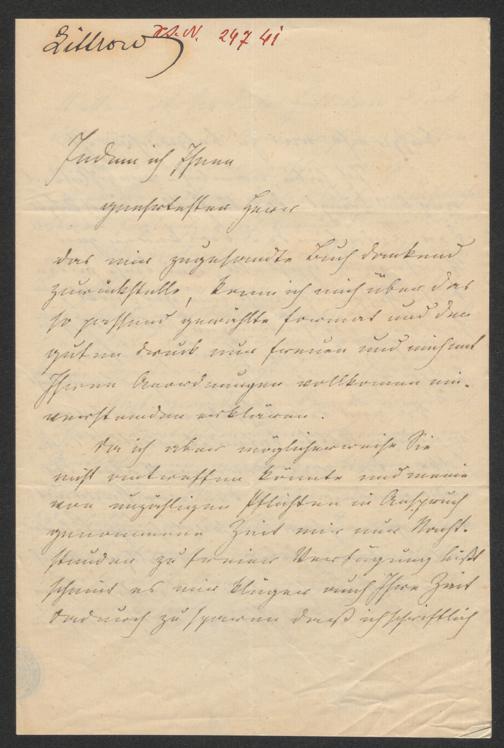 Littrow
H.I.N. 24741
Indem ich Ihnen
geehrtester Herr
das mir zugesandte Buch dankend
zurückstelle, kann ich mich über das
so passend gewählte Format und den
guten Druck nur freuen und mich mit
Ihren Anordnungen vollkommen ein-
verstanden erklären.
Da ich aber möglicherweise Sie
nicht antreffen könnte und meine
von unzähligen Pflichten in Anspruch
genommene Zeit mir nur Nacht-
stunden zu freier Verfügung läßt
scheint es mir klüger auch Ihre Zeit
dadurch zu sparen daß ich schriftlich